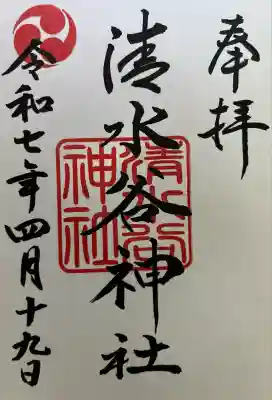 奉拝
清水谷神社
清水谷神社
令和七年四月十九日